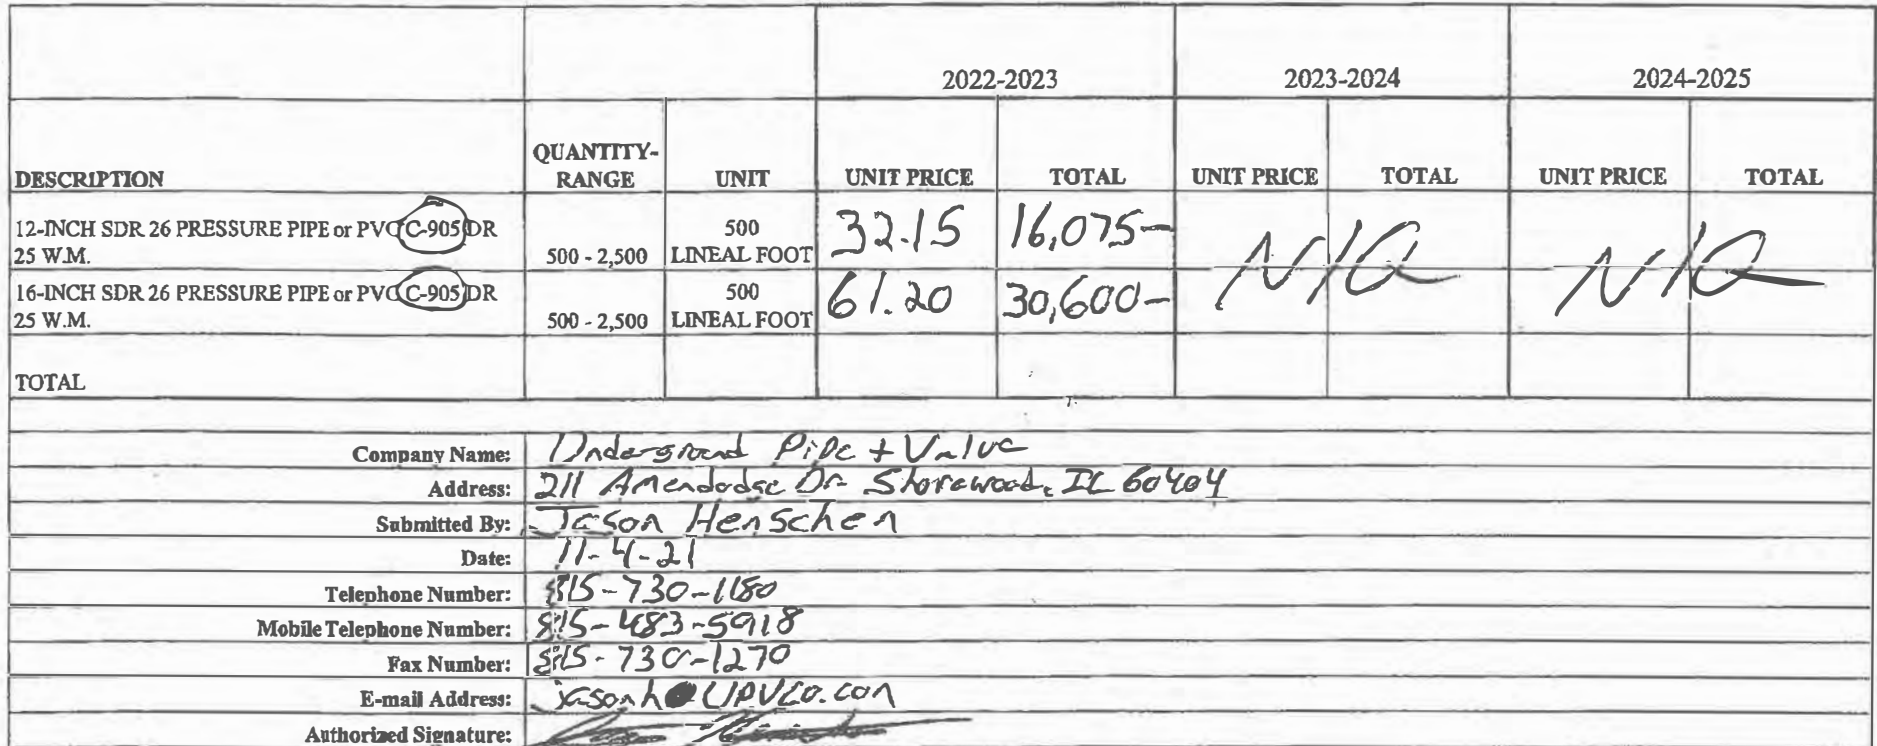 2022-2023 2023-2024 2024-2025
DESCRIPTION QUANTITY-RANGE UNIT UNIT PRICE TOTAL UNIT PRICE TOTAL UNIT PRICE TOTAL
12-INCH SDR 26 PRESSURE PIPE or PVC C-905 DR
25 W.M. 500 - 2,500 500 LINEAL FOOT 32.15 16,075- N/A N/A
16-INCH SDR 26 PRESSURE PIPE or PVC C-905 DR
25 W.M. 500 - 2,500 500 LINEAL FOOT 61.20 30,600-
TOTAL
Company Name: Underground Pipe + Valve
Address: 211 Amendodge Dr Shorewood, IL 60404
Submitted By: Jason Henschen
Date: 11-4-21
Telephone Number: 815-730-1180
Mobile Telephone Number: 815-483-5918
Fax Number: 815-730-1270
E-mail Address: jasonh@UPVCO.com
Authorized Signature: